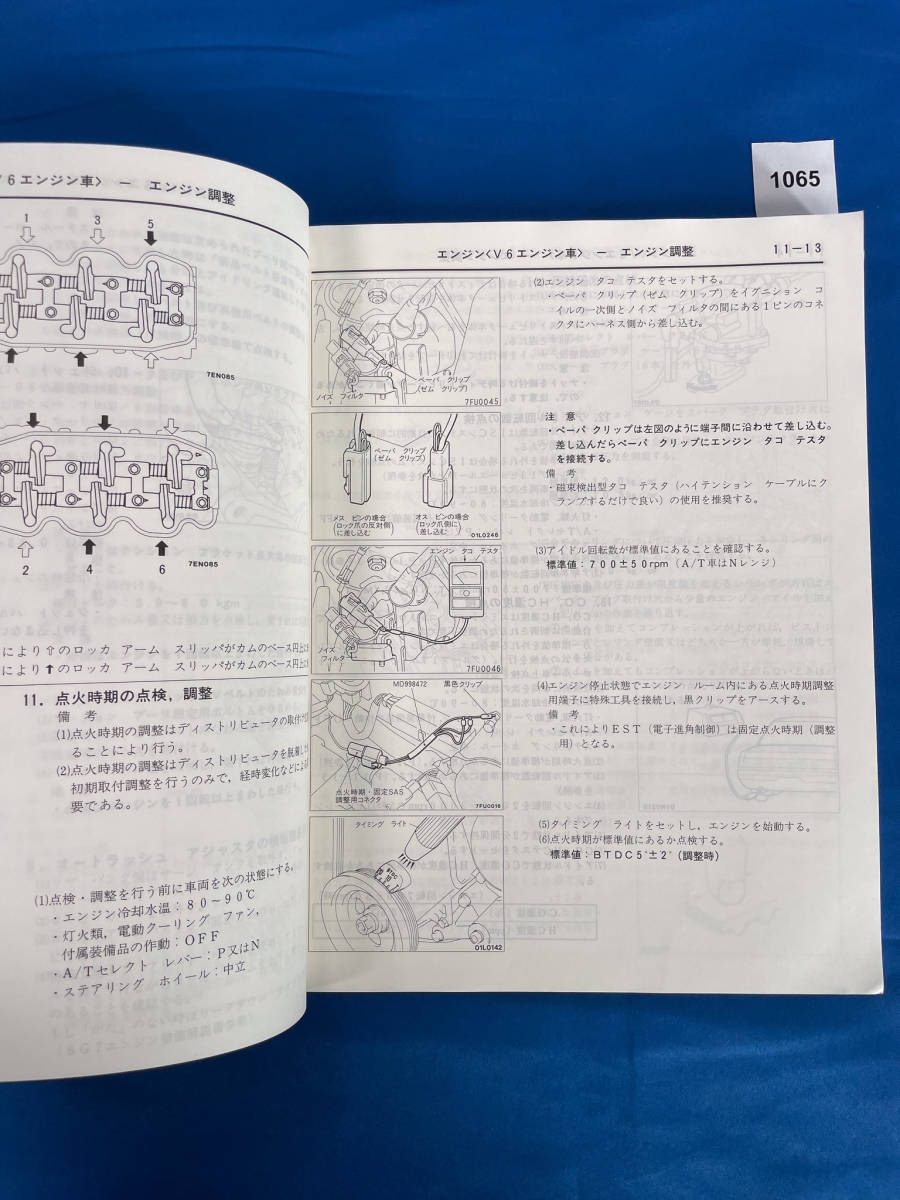 1065
6エンジン車〉 ー エンジン調整
1
3
5
7EN085
2
4
6
7EN085
により⇧のロッカ アーム スリッパがカムのベース円上
により⬆のロッカ アーム スリッパがカムのベース円上
11．点火時期の点検，調整
備 考
(1)点火時期の調整はディストリビュータの取付
ることにより行う。
(2)点火時期の調整はディストリビュータを脱
初期取付調整を行うのみで，経時変化などによる
要である。
(1)点検・調整を行う前に車両を次の状態にする。
・エンジン冷却水温：80～90℃
・灯火類，電動クーリング ファン，
付属装備品の作動：OFF
・A/Tセレクト レバー：P又はN
・ステアリング ホイール：中立
エンジン〈V6エンジン車〉 ー エンジン調整 11－13
ノイズ フィルタ
ペーパ クリップ
(ゼム クリップ)
7FU0045
(2)エンジン タコ テスタをセットする。
・ペーパ クリップ（ゼム クリップ）をイグニション コ
イルの一次側とノイズ フィルタの間にある1ピンのコネ
クタにハーネス側から差し込む。
ペーパ クリップ
(ゼム クリップ)
メス ピンの場合
(ロック爪の反対側)
に差し込む
オス ピンの場合
(ロック爪側に)
差し込む
01L0246
注 意
・ペーパ クリップは左図のように端子間に沿わせて差し込む。
差し込んだらペーパ クリップにエンジン タコ テスタ
を接続する。
備 考
・磁束検出型タコ テスタ（ハイテンション ケーブルにク
ランプするだけで良い）の使用を推奨する。
エンジン タコ テスタ
ノイズ
フィルタ
7FU0046
(3)アイドル回転数が標準値にあることを確認する。
標準値：700±50rpm（A/T車はNレンジ）
MD998472
黒色クリップ
点火時期・固定SAS
調整用コネクタ
7FU0016
(4)エンジン停止状態でエンジン ルーム内にある点火時期調整
用端子に特殊工具を接続し，黒クリップをアースする。
備 考
・これによりEST（電子進角制御）は固定点火時期（調整
用）となる。
タイミング ライト
01L0142
(5)タイミング ライトをセットし，エンジンを始動する。
(6)点火時期が標準値にあるか点検する。
標準値：BTDC5°±2°（調整時）